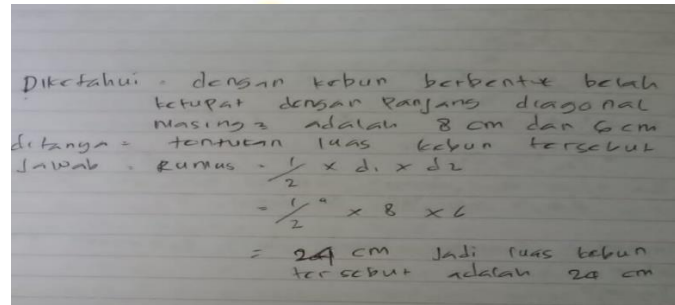 Diketahui = dengan kebun berbentuk belah
ketupat dengan Panjang diagonal
Masing2 adalah 8 cm dan 6 cm
ditanya = tentukan luas kebun tersebut
Jawab = Rumus = 1/2 x d1 x d2
= 1/2 x 8 x 6
= 24 cm Jadi luas kebun
tersebut adalah 24 cm